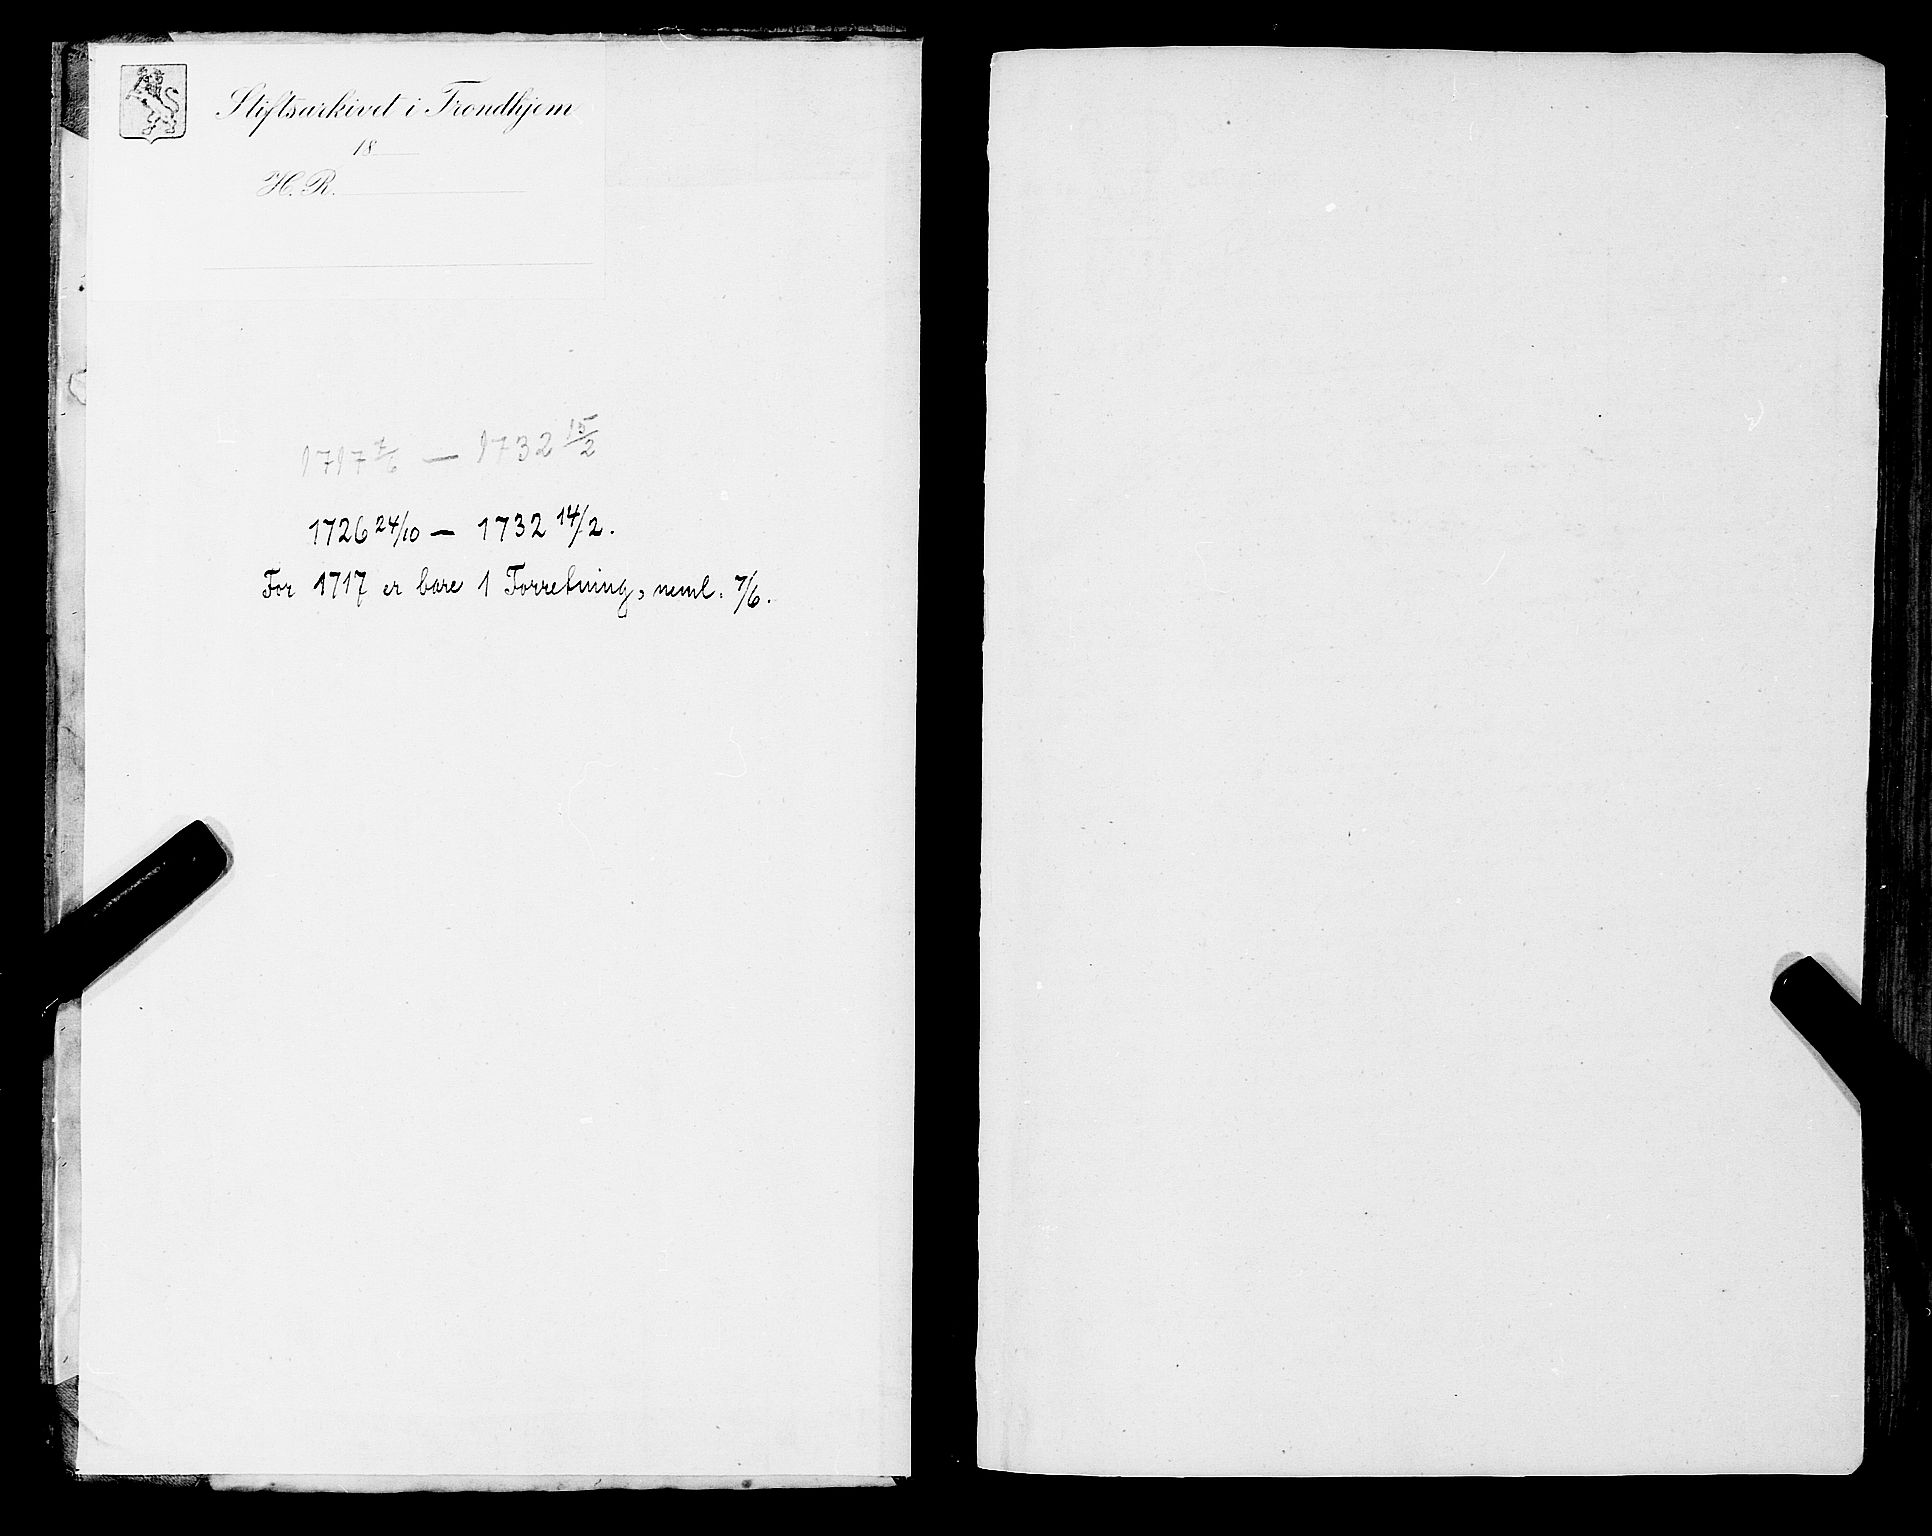 Stiftsarkivet i Trondhjem
18
H. R.
1717 7/6 — 1732 15/2
1726 24/10 — 1732 14/2.
For 1717 er bare 1 Forretning, neml. 7/6.